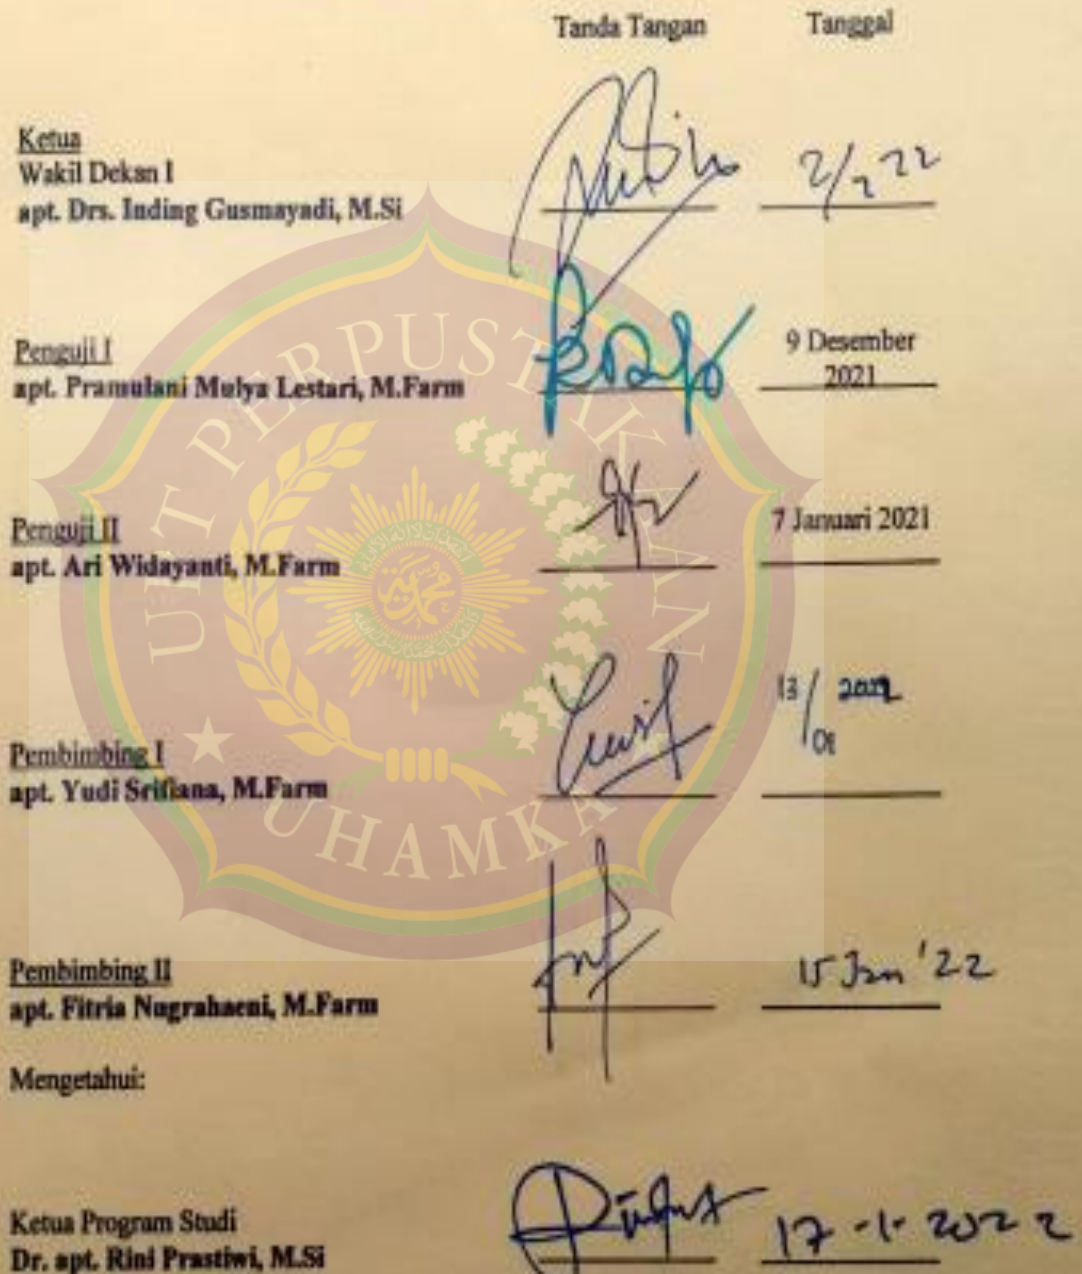 Tanda Tangan Tanggal
Ketua
Wakil Dekan I
apt. Drs. Inding Gusmayadi, M.Si 2/2 22
Penguji I 9 Desember
apt. Pramulani Mulya Lestari, M.Farm 2021
Penguji II 7 Januari 2021
apt. Ari Widayanti, M.Farm
13/01 2022
Pembimbing I
apt. Yudi Srifiana, M.Farm
Pembimbing II 15 Jan '22
apt. Fitria Nugrahaeni, M.Farm
Mengetahui:
Ketua Program Studi
Dr. apt. Rini Prastiwi, M.Si 17-1-2022
UPT PERPUSTAKAAN
UHAMKA